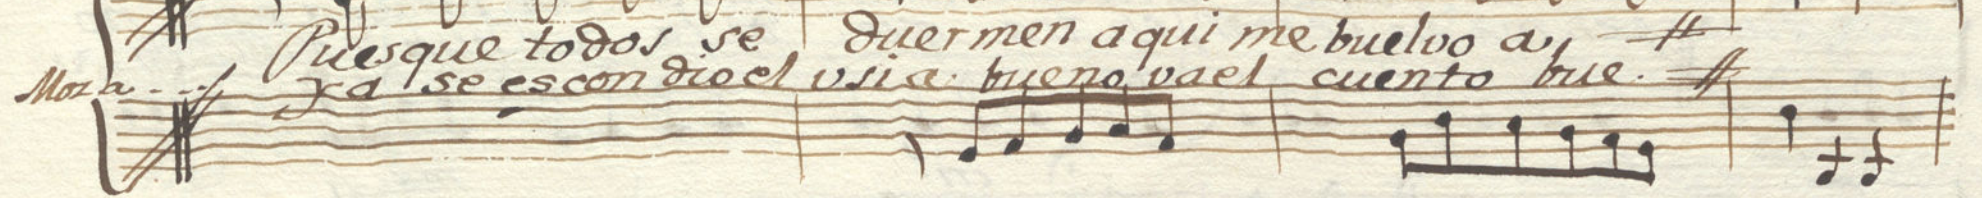 Pues que todos se duermen aqui me buelvo a,
Moza.... ya se escondio el usia. bueno va el cuento bue.